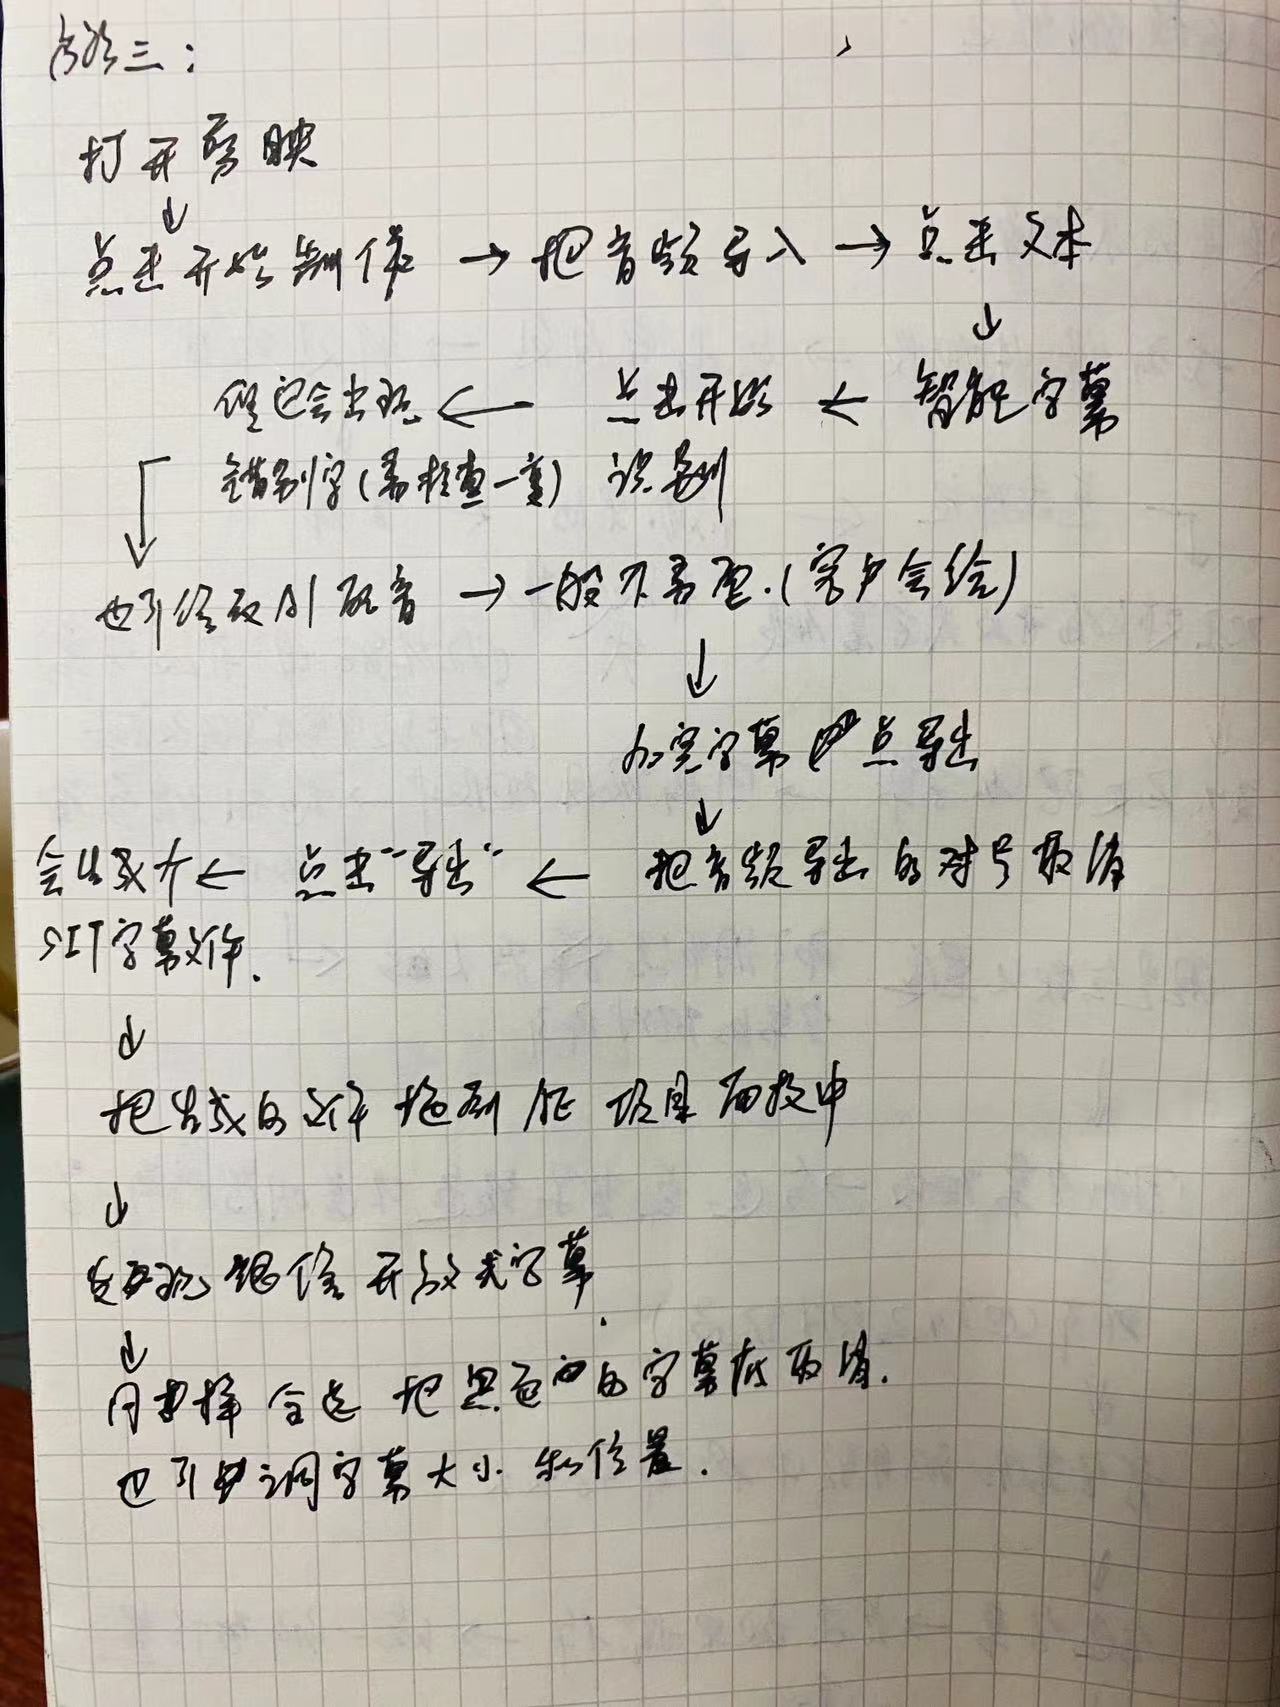 方法三：
打开剪映
↓
点击开始制作 → 把音频导入 → 点击文本
↓
但它会出现 ← 点击开始 ← 智能字幕
错别字(需检查一遍) 识别
↓
也可修改AI配音 → 一般不需要.(客户会给)
↓
加完字幕 点导出
↓
会生成个 ← 点击“导出” ← 把音频导出的对号取消
SIT字幕文件.
↓
把生成的文件拖到 项目面板中
↓
开放式字幕.
↓
全选 把黑色的字幕底取消.
也可 调字幕大小和位置.